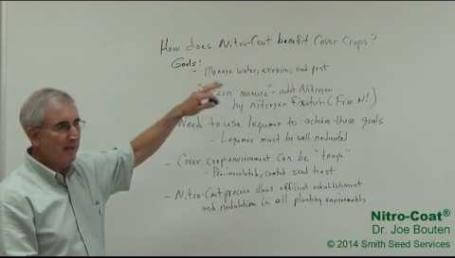 How does Nitro-Coat benefit Cover Crops?
Goals:
- Manage water, erosion, and pest
"Green manure" - add Nitrogen
by nitrogen fixation (Free N!)
Need to use legumes to achieve these goals
- Legumes must be well nodulated
- Cover crop environment can be "tough"
- seed treat
- Nitro-Coat process allows efficient establishment
and nodulation in all planting environments
Nitro-Coat®
Dr. Joe Bouten
© 2014 Smith Seed Services